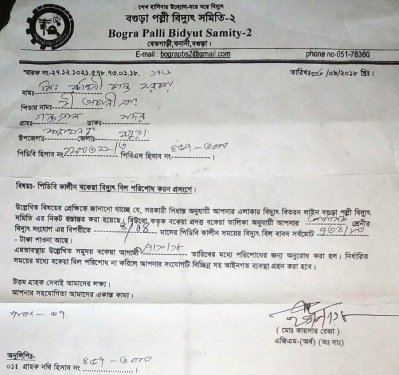 শেখ হাসিনার উদ্যোগ-ঘরে ঘরে বিদ্যুৎ
বগুড়া পল্লী বিদ্যুৎ সমিতি-২
Bogra Palli Bidyut Samity-2
বেতগাড়ী, বনানী, বগুড়া।
E-mail : bograpbs2@gmail.com phone no-051-78360
স্মারক নং-২৭.১২.১০২১.৫৭৮.৭৩.০১.১৮.
তারিখঃ /০৪/২০১৮ খ্রিঃ।
নামঃ
পিতার নামঃ
গ্রামঃ ডাকঃ সদর
উপজেলাঃ জেলাঃ বগুড়া
পিডিবি হিসাব নং পিবিএস হিসাব নং
বিষয়ঃ- পিডিবি কালীন বকেয়া বিদ্যুৎ বিল পরিশোধ করন প্রসংগে।
উল্লেখিত বিষয়ের প্রেক্ষিতে জানানো যাচ্ছে যে, সরকারী সিদ্ধান্ত অনুযায়ী আপনার এলাকার বিদ্যুৎ বিতরন লাইন বগুড়া পল্লী বিদ্যুৎ
সমিতি এর নিকট হস্তান্তর করা হয়েছে। বিউবো কতৃক বকেয়া প্রদত্ত তালিকা অনুযায়ী আপনার শ্রেনীর
বিদ্যুৎ সংযোগ এর বিপরীতে মাসের পিডিবি কালীন সময়ের বিদ্যুৎ বিল বাবদ সর্বমোট
- টাকা পাওনা আছে।
এমতাবস্থায় উল্লেখিত সমুদয় বকেয়া আগামী তারিখের মধ্যে পরিশোধের জন্য অনুরোধ করা হল। নির্ধারিত
সময়ের মধ্যে বকেয়া বিল পরিশোধ না করিলে আপনার সংযোগটি বিচ্ছিন্ন সহ আইনগত ব্যবস্থা গ্রহন করা হবে।
উত্তম গ্রাহক সেবাই আমাদের লক্ষ্য।
আপনার সহযোগিতা আমাদের একান্ত কাম্য।
( মোঃ কায়সার রেজা )
এজিএম-(অর্থ) (অঃ দাঃ)
অনুলিপিঃ-
০১। গ্রাহক নথি হিসাব নং